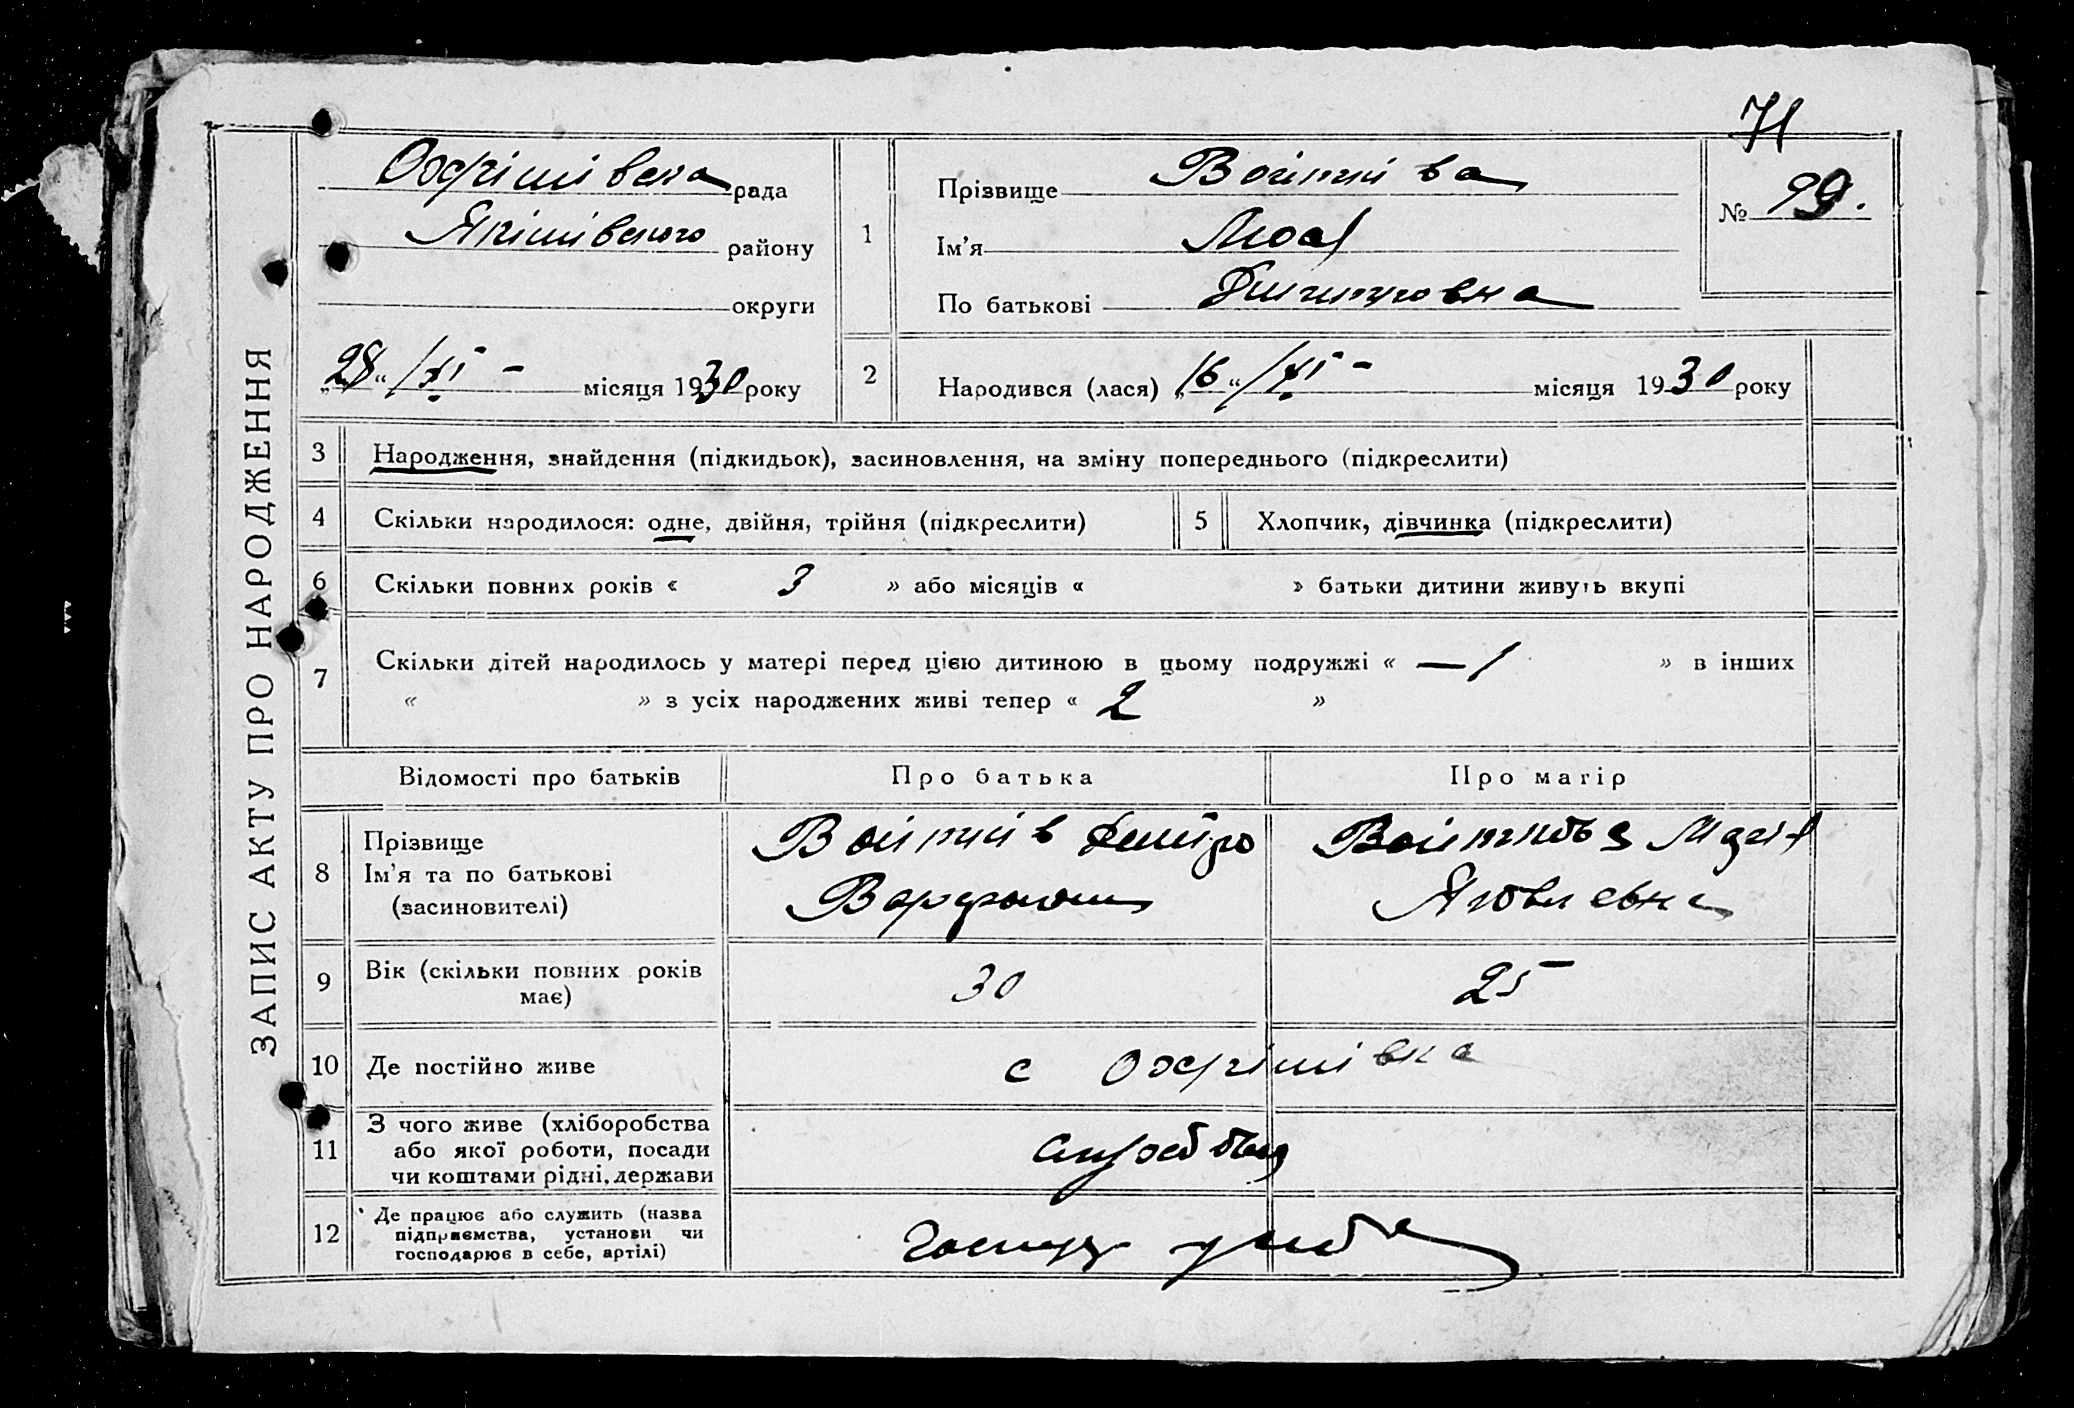 71
ЗАПИС АКТУ ПРО НАРОДЖЕННЯ
Охрімівська рада
Якімівського району
округи
„28“ /XI - місяця 1930 року
1
Прізвище Войтківа
Ім’я
По батькові
№ 99.
2
Народився (лася) „16“ /XI - місяця 1930 року
3 Народження, знайдення (підкидьок), засиновлення, на зміну попереднього (підкреслити)
4 Скільки народилося: одне, двійня, трійня (підкреслити)
5 Хлопчик, дівчинка (підкреслити)
6 Скільки повних років « 3 » або місяців « » батьки дитини живуть вкупі
7 Скільки дітей народилось у матері перед цією дитиною в цьому подружжі « — 1 » в інших
« » з усіх народжених живі тепер « 2 »
Відомості про батьків
Про батька
Про матір
8 Прізвище
Ім’я та по батькові
(засиновителі)
Войтків Дмитро
Войткова Марія
Яковлевна
9 Вік (скільки повних років
має)
30
25
10 Де постійно живе
с Охрімівка
11 З чого живе (хліборобства
або якої роботи, посади
чи коштами рідні, держави
12 Де працює або служить (назва
підприємства, установи чи
господарює в себе, артілі)